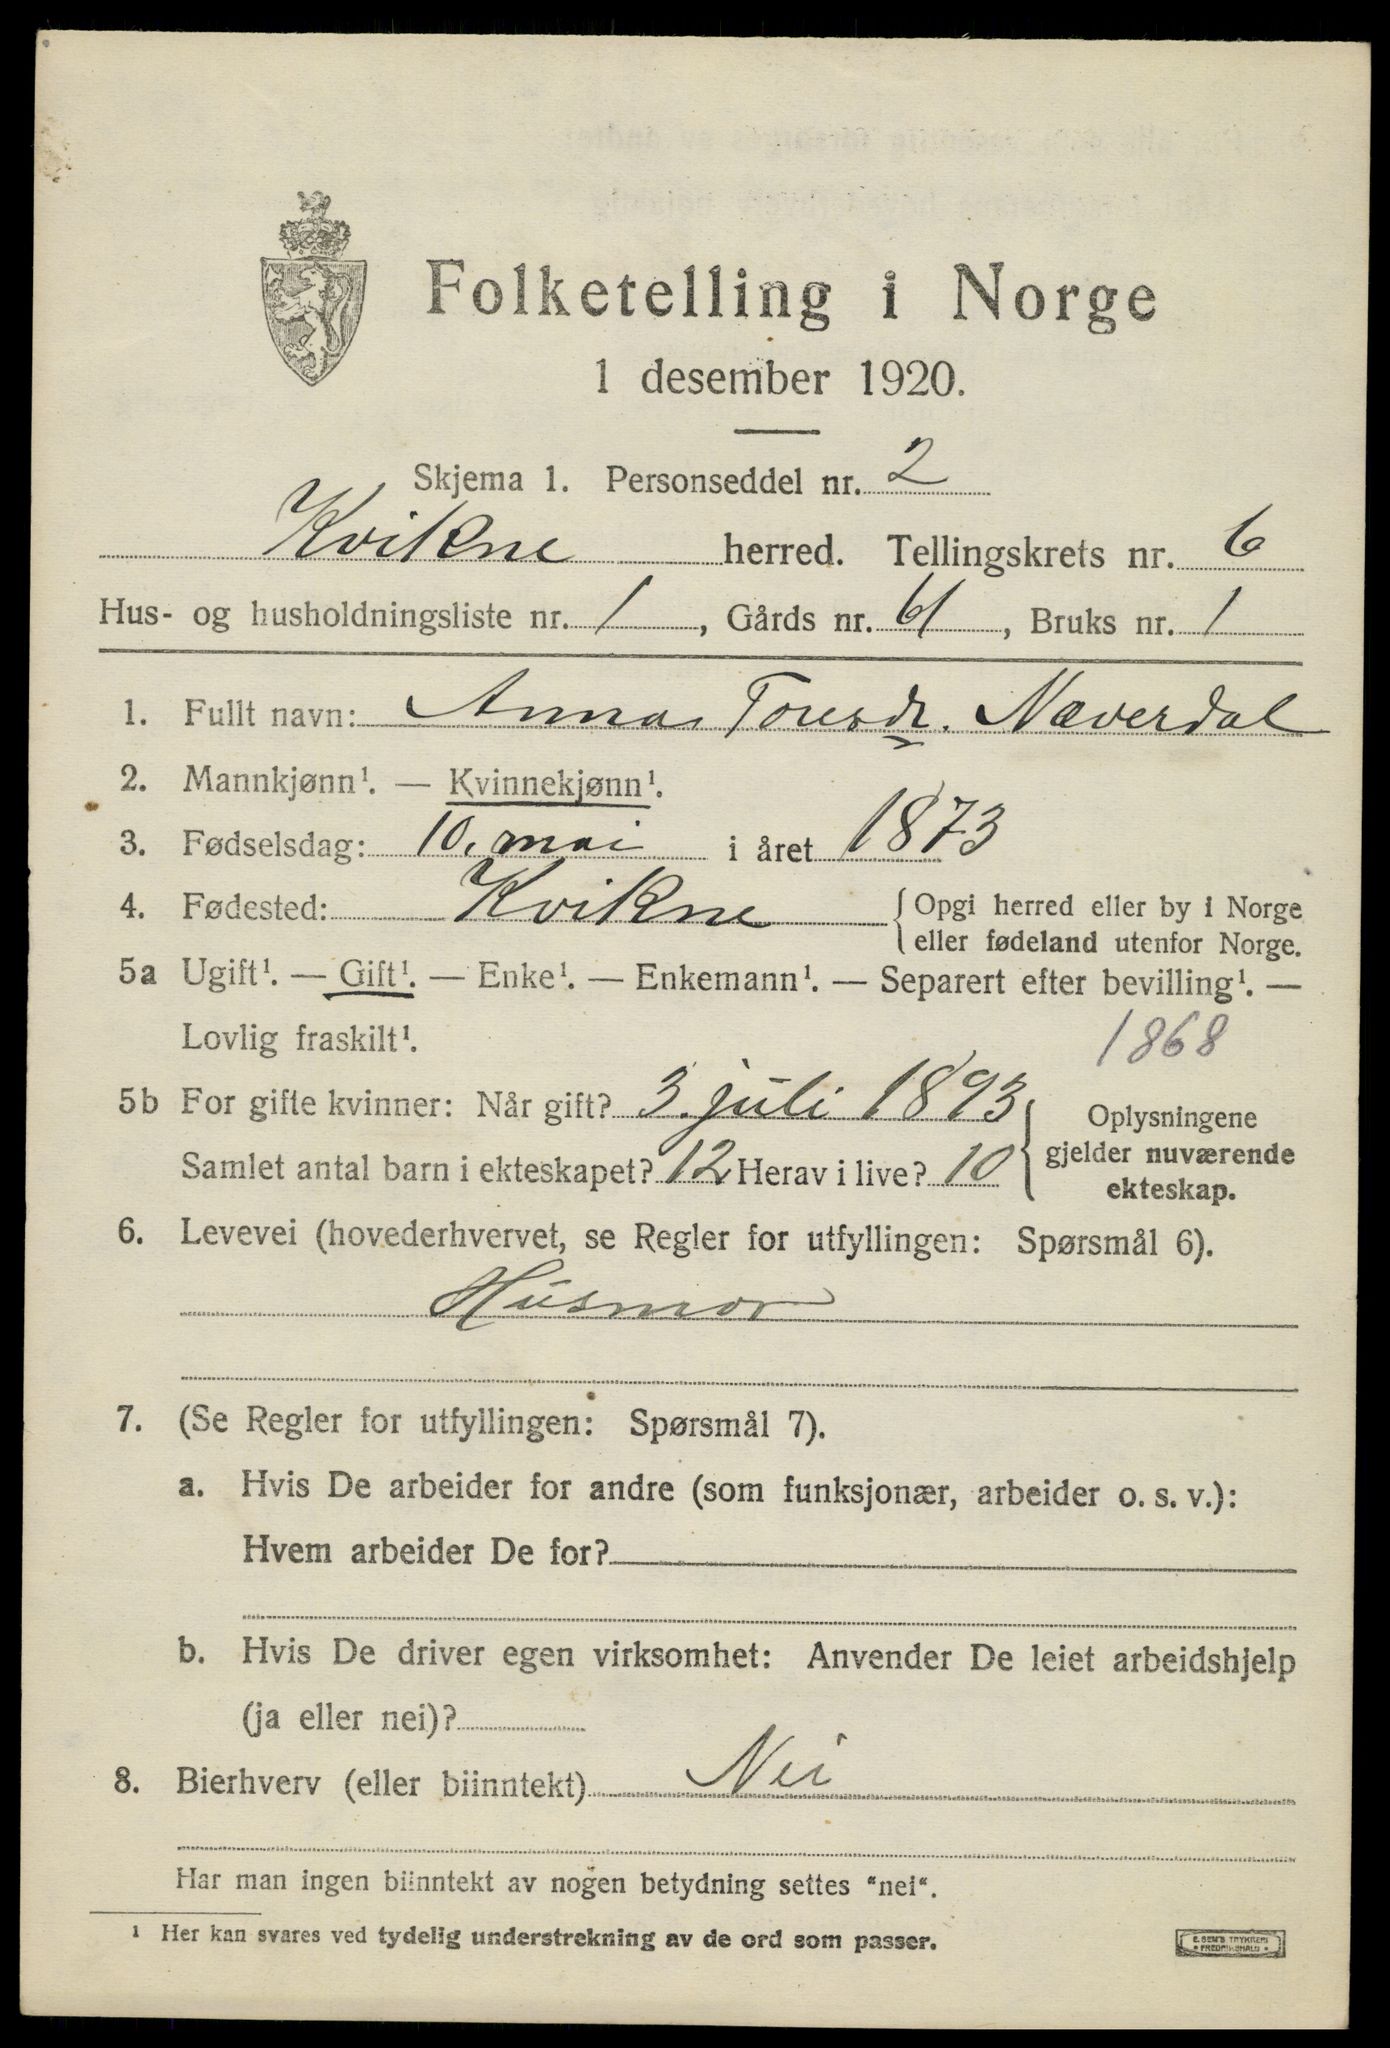 Folketelling i Norge
1 desember 1920.
Skjema 1. Personseddel nr. 2
Kvikne herred. Tellingskrets nr. 6
Hus- og husholdningsliste nr. 1, Gårds nr. 61, Bruks nr. 1
1. Fullt navn: Anna Toresdr. Næverdal
2. Mannkjønn¹. — Kvinnekjønn¹.
3. Fødselsdag: 10. mai i året 1873
4. Fødested: Kvikne { Opgi herred eller by i Norge
eller fødeland utenfor Norge.
5a Ugift¹. — Gift¹. — Enke¹. — Enkemann¹. — Separert efter bevilling¹. —
Lovlig fraskilt¹. 1868
5b For gifte kvinner: Når gift? 3. juli 1893
Samlet antal barn i ekteskapet? 12 Herav i live? 10
Oplysningene
gjelder nuværende
ekteskap.
6. Levevei (hovederhvervet, se Regler for utfyllingen: Spørsmål 6).
Husmor
7. (Se Regler for utfyllingen: Spørsmål 7).
a. Hvis De arbeider for andre (som funksjonær, arbeider o. s. v.):
Hvem arbeider De for?
b. Hvis De driver egen virksomhet: Anvender De leiet arbeidshjelp
(ja eller nei)?
8. Bierhverv (eller biinntekt) Nei
Har man ingen biinntekt av nogen betydning settes "nei".
¹ Her kan svares ved tydelig understrekning av de ord som passer.
E. SEM'S TRYKKERI
FREDRIKSHALD